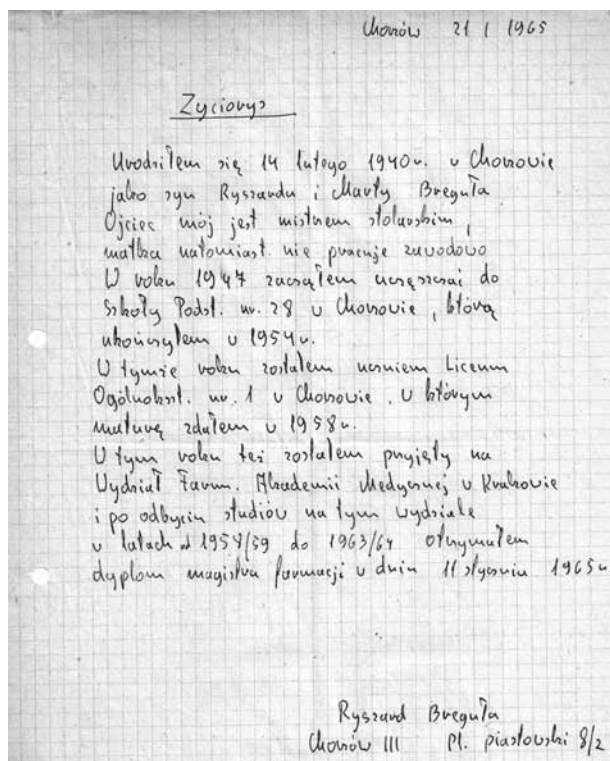 Chorzów 21 I 1965
Życiorys
Urodziłem się 14 lutego 1940r. w Chorzowie
jako syn Ryszarda i Marty Breguła
Ojciec mój jest mistrzem stolarskim,
matka natomiast nie pracuje zawodowo
W roku 1947 zacząłem uczęszczać do
Szkoły Podst. nr. 28 w Chorzowie, którą
ukończyłem w 1954r.
W tymże roku zostałem uczniem Liceum
Ogólnokszt. nr. 1 w Chorzowie, w którym
maturę zdałem w 1958r.
W tym roku też zostałem przyjęty na
Wydział Farm. Akademii Medycznej w Krakowie
i po odbyciu studiów na tym wydziale
w latach od 1957/59 do 1963/64 otrzymałem
dyplom magistra farmacji w dniu 11 stycznia 1965r
Ryszard Breguła
Chorzów III Pl. piastowski 8/2